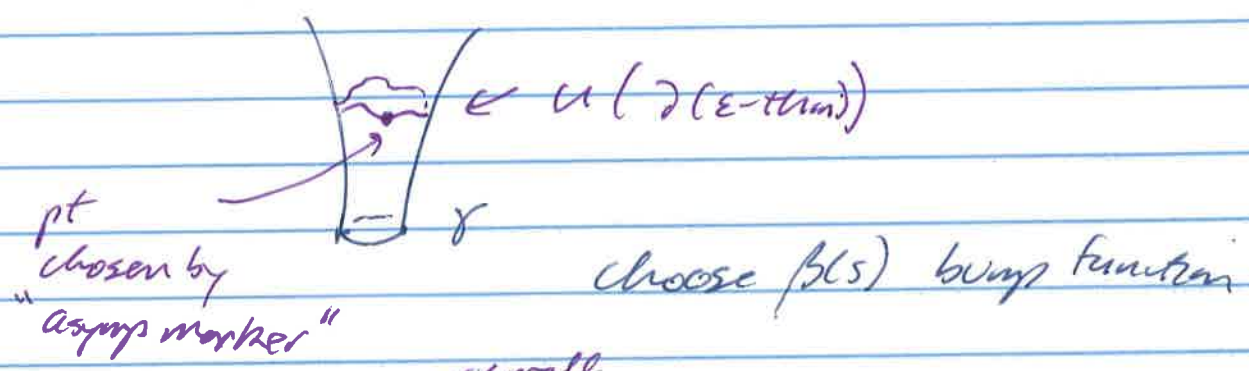 ← u(∂(ε-thin))
pt
chosen by
"asymp marker"
γ
choose β(s) bump function